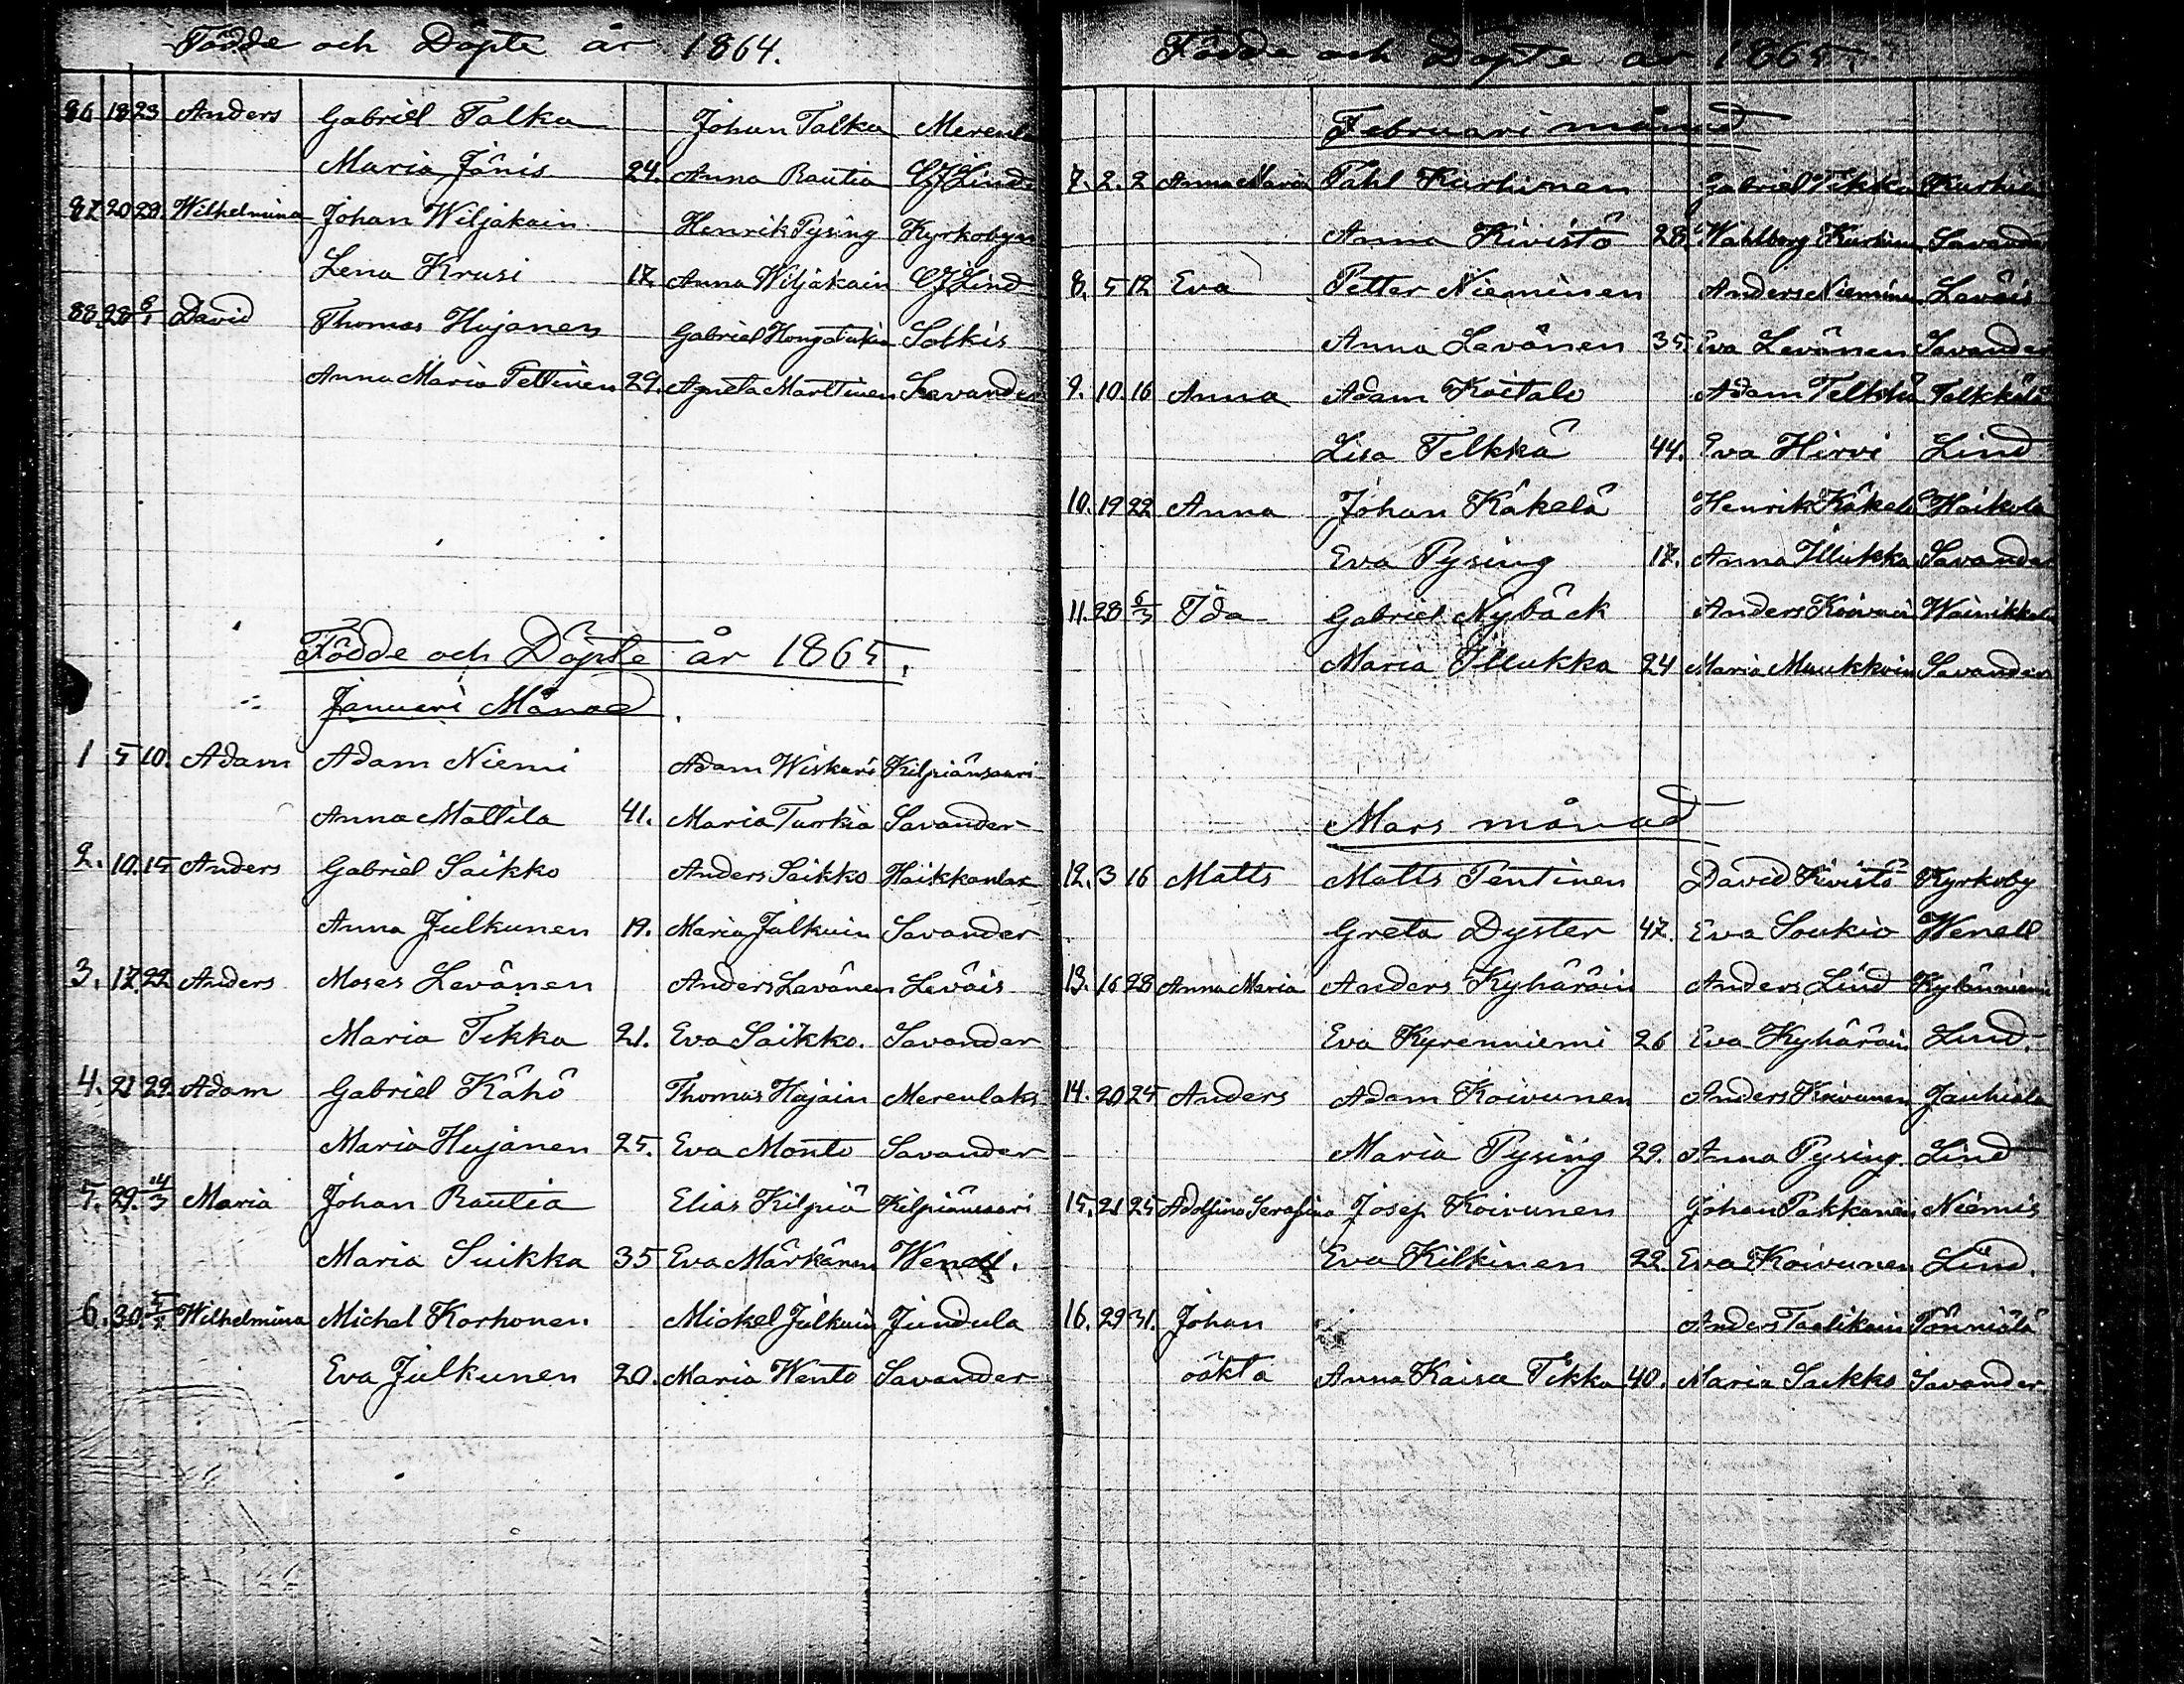 Födde och Döpte år 1864.
86 18 23 Anders Gabriel Talka Johan Talka
Maria Jänis 24. Anna Rautia CJLind
87 20 29. Wilhelmina Johan Wiljakain Henrik Pysing Kyrkobyn
Lena Krusi 17 Anna Wiljakain CJLind
88 28 6/1 David Thomas Hujanen Gabriel Solkis
Anna Maria Peltinen 29. Agneta Marttinen Savander
Födde och Döpte år 1865.
Januari Månad
1 5 10. Adam Adam Niemi Adam Wiskari Kilpiänsaari
Anna Mattila 41. Maria Turkia Savander
2. 10. 15 Anders Gabriel Saikko Anders Saikko Häikkanlax
Anna Julkunen 19. Maria Julkuin Savander
3. 17. 22 Anders Moses Levänen Anders Levänen Leväis
Maria Tikka 21. Eva Saikko. Savander
4. 21 29. Adam Gabriel Kähö Thomas Hujain Merenlaks
Maria Hujanen 25. Eva Monto Savander
5. 29. 14/3 Maria Johan Rautia Elias Kilpiä Kilpiänsaari
Maria Suikka 35 Eva Märkänen Wenell.
6. 30. Wilhelmina Michel Korhonen. Mickel Julkuin Jundula
Eva Julkunen 20. Maria Wento Savander
Födde och Döpte år 1865.
Februari månad
7. 2. 2 Anna Maria Påhl Kurhinen Gabriel Tikka
Anna Kivistö 28. Wahlborg Savander
8. 5 12 Eva Petter Nieminen Anders Nieminen Leväis
Anna Levänen 35. Eva Levänen Savander
9. 10. 16 Anna Adam Koitalo Adam Telkkä Telkkälä
Lisa Telkkä 44. Eva Hirvi Lind
10. 19 22 Anna Johan Käkelä Henrik Käkelä Haikola
Eva Pysing 17. Anna Illukka Savander
11. 28 5/3 Ida Gabriel Nybäck Anders Koivuin Wainikkala
Maria Illukka 24 Maria Muukkoin Savander
Mars månad
12. 3 16 Matts Matts Pentinen David Kivistö Kyrkoby
Greta Dyster 47. Eva Soukio Wenell
13. 16 28 Anna Maria Anders Kyhäräin Anders Lind Kylänniemi
Eva Kyrenniemi 26 Eva Kyhäräin Lind.
14. 20 24 Anders Adam Koivunen Anders Koivunen Jauhiala
Maria Pysing 29. Anna Pysing. Lind
15. 21 25 Adolfina Serafina Josep Koivunen Johan Pakkanen Niemis
Eva Kilkinen 22. Eva Koivunen Lind.
16. 29 31. Johan Anders Taalikain Pönniälä
oäkta Anna Kaisa Tikka 40. Maria Saikko Savander